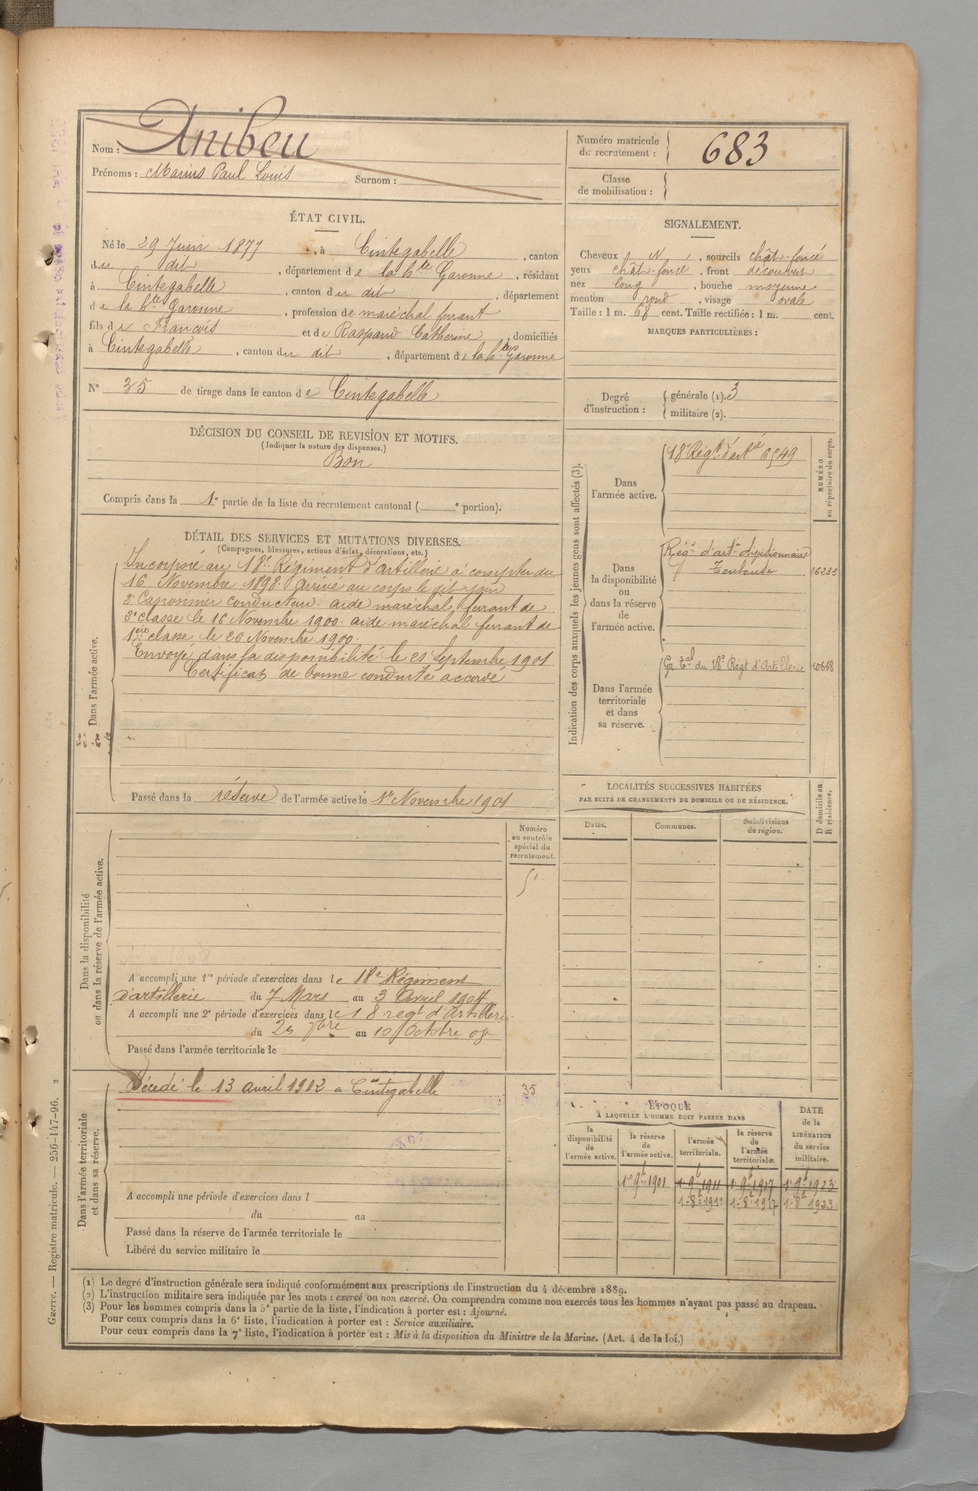 Nom : Anibeu
Prénoms : Marius Paul Louis Surnom :
Numéro matricule du recrutement : 683
Classe de mobilisation :
ÉTAT CIVIL.
Né le 29 Juin 1877, à Cintegabelle, canton
du dit, département de la hte Garonne, résidant
à Cintegabelle, canton du dit, département
de la hte Garonne, profession de maréchal ferrant
fils de François et de Raspaud Catherine, domiciliés
à Cintegabelle, canton du dit, département de la hte Garonne
N° 35 de tirage dans le canton de Cintegabelle
SIGNALEMENT.
Cheveux, sourcils chât-foncé
yeux chât-foncé, front découvert
nez long, bouche moyenne
menton rond, visage ovale
Taille : 1 m. 68 cent. Taille rectifiée : 1 m. cent.
MARQUES PARTICULIÈRES :
Degré d'instruction : générale (1). 3
militaire (2).
DÉCISION DU CONSEIL DE REVISION ET MOTIFS.
(Indiquer la nature des dispenses.)
Bon
Compris dans la 1e partie de la liste du recrutement cantonal ( e portion).
DÉTAIL DES SERVICES ET MUTATIONS DIVERSES.
(Campagnes, blessures, actions d'éclat, décorations, etc.)
Dans l'armée active.
Incorporé au 18e Régiment d'artillerie à compter du
16 Novembre 1898 arrivé au corps le dit jour
2e Canonnier conducteur. aide maréchal ferrant de
3e classe le 16 Novembre 1900. aide maréchal ferrant de
1ère classe le 26 Novembre 1900.
Envoyé dans la disponibilité le 21 Septembre 1901
Certificat de bonne conduite accordé
Passé dans la réserve de l'armée active le 1er Novembre 1901
Indication des corps auxquels les jeunes gens sont affectés (3).
NUMÉRO au répertoire du corps.
Dans l'armée active.
18e Régt d'artie 6549
Dans la disponibilité ou dans la réserve de l'armée active.
Toulouse
Dans l'armée territoriale et dans sa réserve.
du 18e Régt d'Artillerie 10658
LOCALITÉS SUCCESSIVES HABITÉES
PAR SUITE DE CHANGEMENTS DE DOMICILE OU DE RÉSIDENCE.
D domicile ou R résidence.
Dates. Communes. Subdivisions de région.
Numéro au contrôle spécial du recrutement.
Dans la disponibilité ou dans la réserve de l'armée active.
A accompli une 1re période d'exercices dans le 18e Régiment
d'artillerie du 7 Mars au 3 Avril 1904
A accompli une 2e période d'exercices dans le 18 regt d'Artillerie
du 23 7bre au 10 Octobre 07
Passé dans l'armée territoriale le
Dans l'armée territoriale et dans sa réserve.
Décédé le 13 avril 1912 à Cintegabelle
35
A accompli une période d'exercices dans l
du au
Passé dans la réserve de l'armée territoriale le
Libéré du service militaire le
ÉPOQUE
A LAQUELLE L'HOMME DOIT PASSER DANS
la disponibilité de l'armée active.
la réserve de l'armée active.
l'armée territoriale.
la réserve de l'armée territoriale.
DATE de la LIBÉRATION du service militaire.
1er 9bre 1901 1er 9bre 1911 1er 9bre 1917 1er 9bre 1923
1-8bre 1911 1-8bre 1917 1-8bre 1923
(1) Le degré d'instruction générale sera indiqué conformément aux prescriptions de l'instruction du 4 décembre 1889.
(2) L'instruction militaire sera indiquée par les mots : exercé ou non exercé. On comprendra comme non exercés tous les hommes n'ayant pas passé au drapeau.
(3) Pour les hommes compris dans la 5e partie de la liste, l'indication à porter est : Ajourné.
Pour ceux compris dans la 6e liste, l'indication à porter est : Service auxiliaire.
Pour ceux compris dans la 7e liste, l'indication à porter est : Mis à la disposition du Ministre de la Marine. (Art. 4 de la loi.)
Guerre. — Registre matricule. — 256-147-96. 2